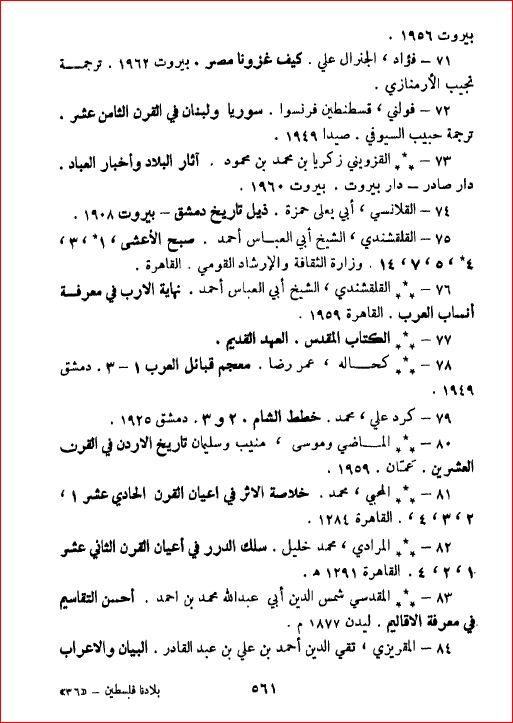 بيروت ١٩٥٦ .
٧١ – فؤاد ، الجنرال علي . كيف غزونا مصر . بيروت ١٩٦٢ . ترجمــة
نجيب الأرمنازي .
٧٢ – فولني ، قسطنطين فرنسوا . سوريا ولبنان في القرن الثامن عشر .
ترجمة حبيب السيوفي . صيدا ١٩٤٩ .
٧٣ – *** القزويني زكريا بن محمد بن محمود . آثار البلاد وأخبار العباد .
دار صادر – دار بيروت . بيروت ١٩٦٠ .
٧٤ – القلانسي ، أبي يعلى حمزة . ذيل تاريخ دمشق – بيروت ١٩٠٨ .
٧٥ – القلقشندي ، الشيخ أبي العبــاس أحمد . صبح الأعشى ، ١* ، ٣ ،
٤* ، ٥ ، ٧ ، ١٤ . وزارة الثقافة والإرشاد القومي . القاهرة .
٧٦ – *** القلقشندي ، الشيخ أبي العباس أحمد . نهاية الارب في معرفــة
أنساب العرب . القاهرة ١٩٥٩ .
٧٧ – *** الكتاب المقدس . العهد القديم .
٧٨ – *** كحــاله ، عمر رضا . معجم قبائل العرب ١ – ٣ . دمشق
١٩٤٩ .
٧٩ – كرد علي ، محمد . خطط الشام . ٢ و ٣ . دمشق ١٩٢٥ .
٨٠ – *** المــاضي وموسى ، منيب وسليمان تاريخ الاردن في القرن
العشرين . عمّان . ١٩٥٩ .
٨١ – *** المحبي ، محمد . خلاصة الاثر في اعيان القرن الحادي عشر ١ ،
٢ ، ٣ ، ٤ . القاهرة ١٢٨٤ .
٨٢ – *** المرادي ، محمد خليل . سلك الدرر في أعيان القرن الثاني عشر
١ ، ٢ ، ٤ . القاهرة ١٢٩١ هـ .
٨٣ – *** المقدسي شمس الدين أبي عبدالله محمد بن احمد . أحسن التقاسيم
في معرفة الاقاليم . ليدن ١٨٧٧ م .
٨٤ – المقريزي ، تقي الدين أحمد بن علي بن عبد القادر . البيان والاعراب
٥٦١
بلادنا فلسطين – «٣٦»